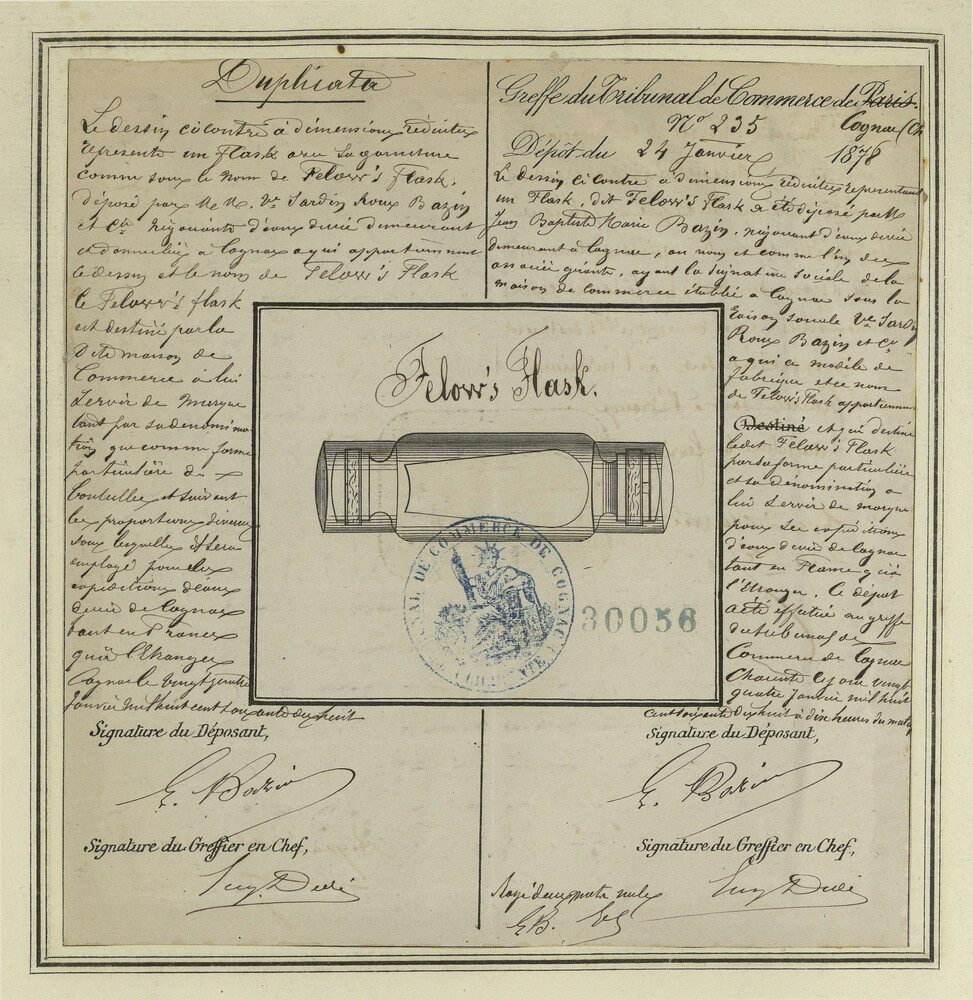 Duplicata
Le dessin ci contre à dimensions réduites
représente un flask avec sa garniture
connu sous le nom de Felow's flask,
déposé par M.M. Ve Sardin Roux Bazin
et Cie négociants d'eaux de vie demeurant
et domiciliés à Cognac a qui appartiennent
le dessin et le nom de Felow's Flask
le Felow's flask
est destiné par la
dite maison de
Commerce à lui
servir de marque
tant par sa dénomina
tion que comme forme
particulière de
bouteilles et suivant
les proportions diverses
sous lesquelles il sera
employé pour les
expéditions d'eaux
de vie de Cognac
tant en France
qu'à l'Etranger
Cognac le vingt quatre
Janvier mil huit cent soixante dix huit
Signature du Déposant,
E. Bazin
Signature du Greffier en Chef,
Greffe du Tribunal de Commerce de Paris.
Cognac (Ch
No 235
Dépôt du 24 Janvier 1878
Le dessin ci contre à dimensions réduites représentant
un Flask, dit Felow's Flask a été déposé par M
Jean Baptiste Marie Bazin, négociant d'eaux de vie
demeurant à Cognac, au nom et comme l'un des
associés gérants, ayant la signature sociale de la
maison de commerce établie à Cognac sous la
raison sociale Ve Sardin
Roux Bazin et Cie
a qui ce modèle de
fabrique et ce nom
de Felow's flask appartiennent
Destiné et qui destine
ledit Felow's Flask
par sa forme particulière
et sa dénomination a
lui servir de marque
pour ses expéditions
d'eaux de vie de Cognac
tant en France qu'à
l'Etranger. Le dépôt
a été effectué au greffe
du tribunal de
Commerce de Cognac
Charente le jour vingt
quatre Janvier mil huit
cent soixante dix huit à dix heures du matin
Signature du Déposant,
E. Bazin
Signature du Greffier en Chef,
Rayé deux mots nuls
E.B.
Felow's Flask.
TRIBUNAL DE COMMERCE DE COGNAC
CHARENTE
30056